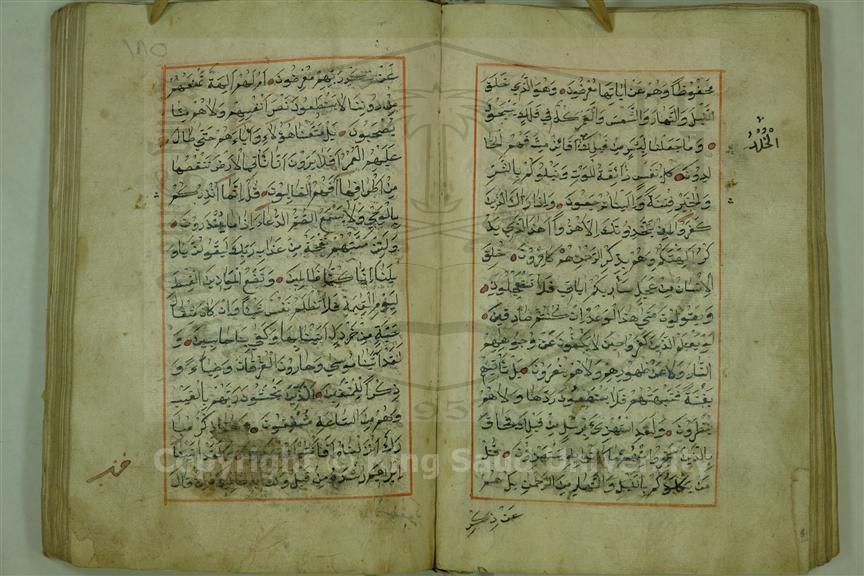 محفوظا وهم عن اياتها معرضون وهو الذي خلق
الليل والنهار والشمس والقمر كل في فلك يسبحون
وما جعلنا لبشر من قبلك افائن مت فهم الخا
الخلد
لدون كل نفس ذائقة الموت ونبلوكم بالشر
والخير فتنة والينا ترجعون واذا راك الذين
كفروا ان يتخذونك الا هزوا اهذا الذي يذ
كر الهتكم وهم بذكر الرحمن هم كافرون خلق
الانسان من عجل ساريكم اياتي فلا تستعجلون
ويقولون متى هذا الوعد ان كنتم صادقين
لو يعلم الذين كفروا حين لا يكفون عن وجوههم
النار ولا عن ظهورهم ولا هم ينصرون بل تاتيهم
بغتة فتبهتهم فلا يستطيعون ردها ولا هم
ينظرون ولقد استهزئ برسل من قبلك فحاق
بالذين سخروا منهم ما كانوا به يستهزؤن قل
من يكلؤكم بالليل والنهار من الرحمن بل هم
عن ذكر
١٨٥
عن ذكر ربهم معرضون ام لهم الهة تمنعهم
من دوننا لا يستطيعون نصر انفسهم ولا هم منا
يصحبون بل متعنا هؤلاء واباءهم حتى طال
عليهم العمر افلا يرون انا ناتي الارض ننقصها
من اطرافها افهم الغالبون قل انما انذركم
بالوحي ولا يسمع الصم الدعاء اذا ما ينذرون
ولئن مستهم نفحة من عذاب ربك ليقولن يا و
يلنا انا كنا ظالمين ونضع الموازين القسط
ليوم القيمة فلا تظلم نفس شيئا وان كان مثقال
حبة من خردل اتينا بها وكفى بنا حاسبين و
لقد اتينا موسى وهارون الفرقان وضياء و
ذكرا للمتقين الذين يخشون ربهم بالغيب
وهم من الساعة مشفقون وهذا ذكر مبا
رك انزلناه افانتم له منكرون ولقد اتينا
ابراهيم رشده من قبل وكنا به عالمين اذ قال
Copyright © King Saud University